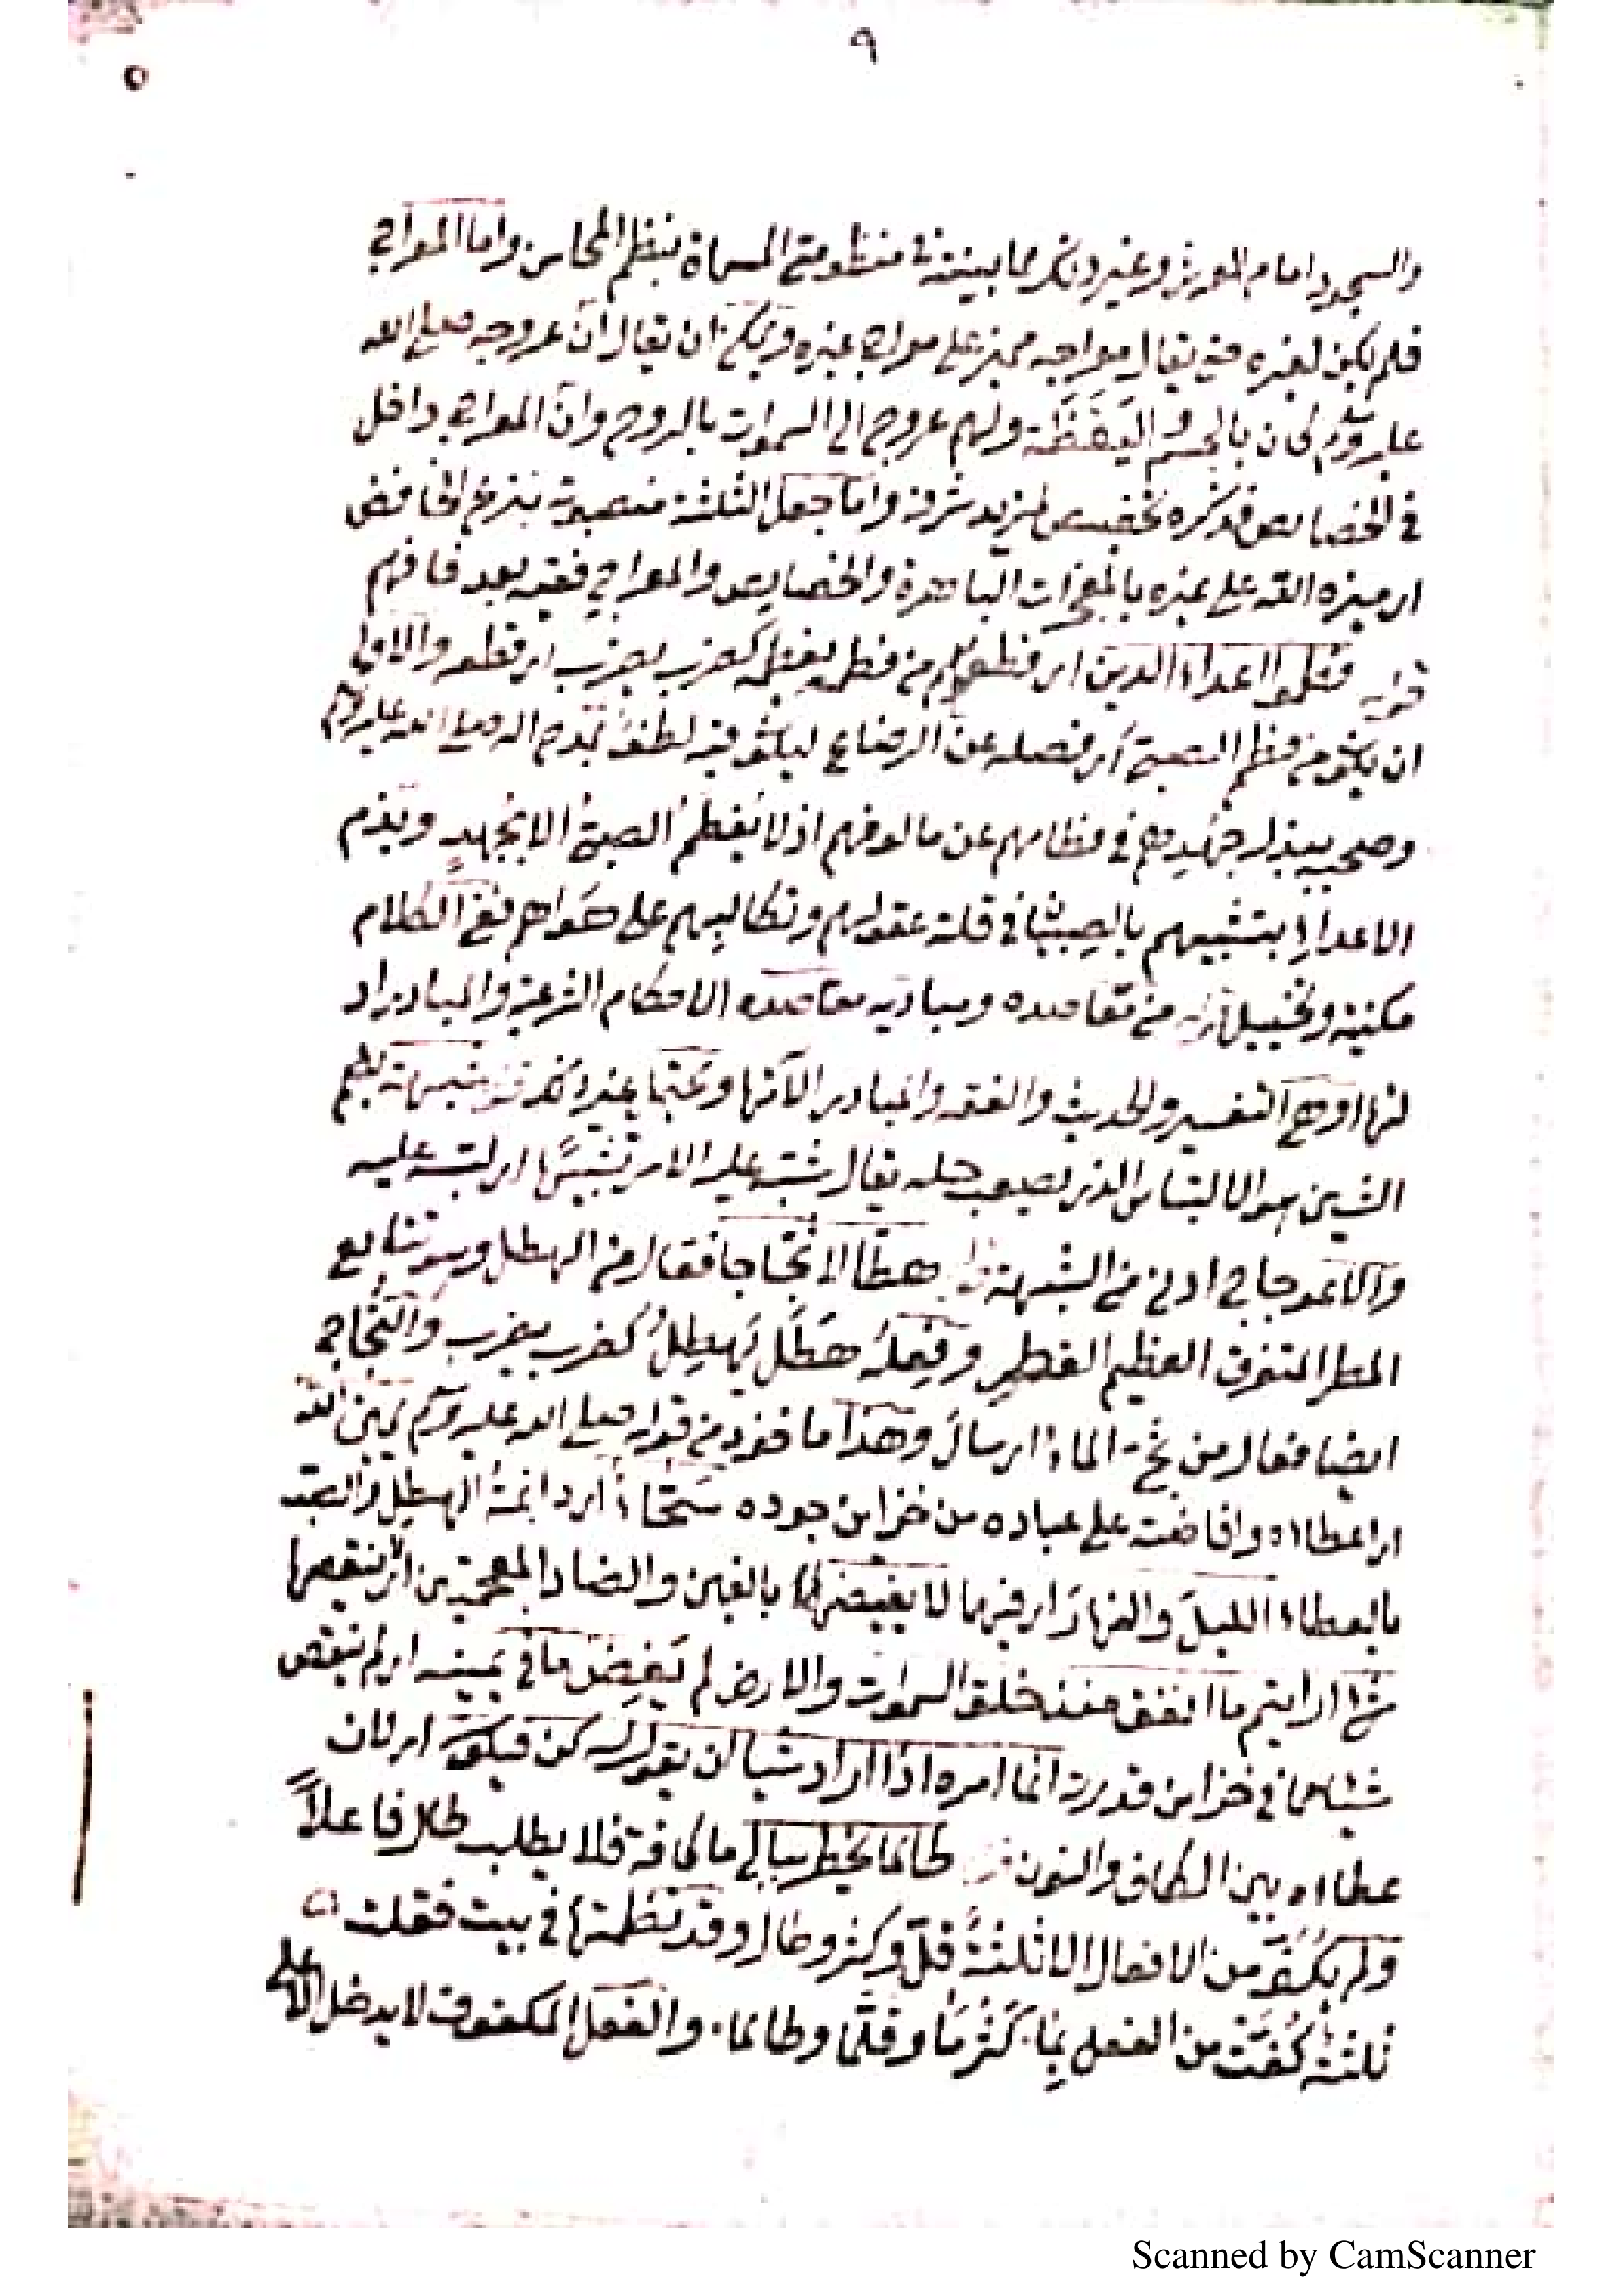 ٩
والسجود امام العرش وغير ذلك مما بينته في منظومتي المسماة بنظم المحاسن واما المعراج
فلم يكن لغيره حتى يقال معراجه مميز على معراج غيره ويمكن ان يقال ان عروجه صلى الله
عليه وسلم كان بالجسم واليقظة ولهم عروج الى السموات بالروح وان المعراج داخل
في الخصايص فذكره تخصيص لمزيد شرفه واما جعل الثلثة منصوبة بنزع الخافض
اي ميزه الله على غيره بالمعجزات الباهرة والخصايص والمعراج ففيه بعد فافهم
قوله فطموا اعداء الدين اي قطعوهم من فطم يفطم كضرب يضرب اي قطع والاولى
ان يكون من فطم الصبي أي فصله عن الرضاع ليكون فيه لطف بمدح اله صلى الله عليه وسلم
وصحبه ببذل جهدهم في فطامهم عن مالوفهم اذ لا يفطم الصبي الا بجهد وبذم
الاعداء بتشبيههم بالصبيان في قلة عقولهم وتكالبهم على هواهم ففي الكلام
مكنية وتخييل قوله من مقاصده ومباديه مقاصده الاحكام الشرعية والمبادي اد
لتها او هي التفسير والحديث والفقه والمبادي الآتها وغيها غير ذلك قوله شبهة بضم
الشين هو الالتباس الذي يصعب حله يقال شبه عليه الامر تشبيها اي لبس عليه
والاعوجاج ادنى من الشبهة قوله هطالا ثجاجا فعال من الهطل وهو تتابع
المطر المتفرق العظيم القطر وفعله هطل يهطل كضرب يضرب والثجاج
ايضا فعال من ثج الماء ارسال وهذا ماخوذ من قوله صلى الله عليه وسلم يمين الله
اي اعطاه وافاضته على عباده من خزاين جوده سحاء أي دائمة الهطل والصب
بالعطاء الليل والنهار اي فيهما لا يغيضها بالغين والضاد المعجمتين اي لا ينقصها
شئ ارايتم ما انفق منذ خلق السموات والارض لم يغض ما في يمينه اي لم ينقص
شيئا مما في خزاين قدرته انما امره اذا اراد شيئا ان يقول له كن فيكون اي لان
عطاه بين الكاف والنون قوله طالما يخطر ببالي ما كافة فلا يطلب طال فاعلاً
ولم يكف من الافعال الا ثلثة قل وكثر وطال وقد نظمتها في بيت فقلت
ثلثة كفت من الفعل بما كثر ما وقلما وطالما والفعل المكفوف لا يدخل الا على
Scanned by CamScanner